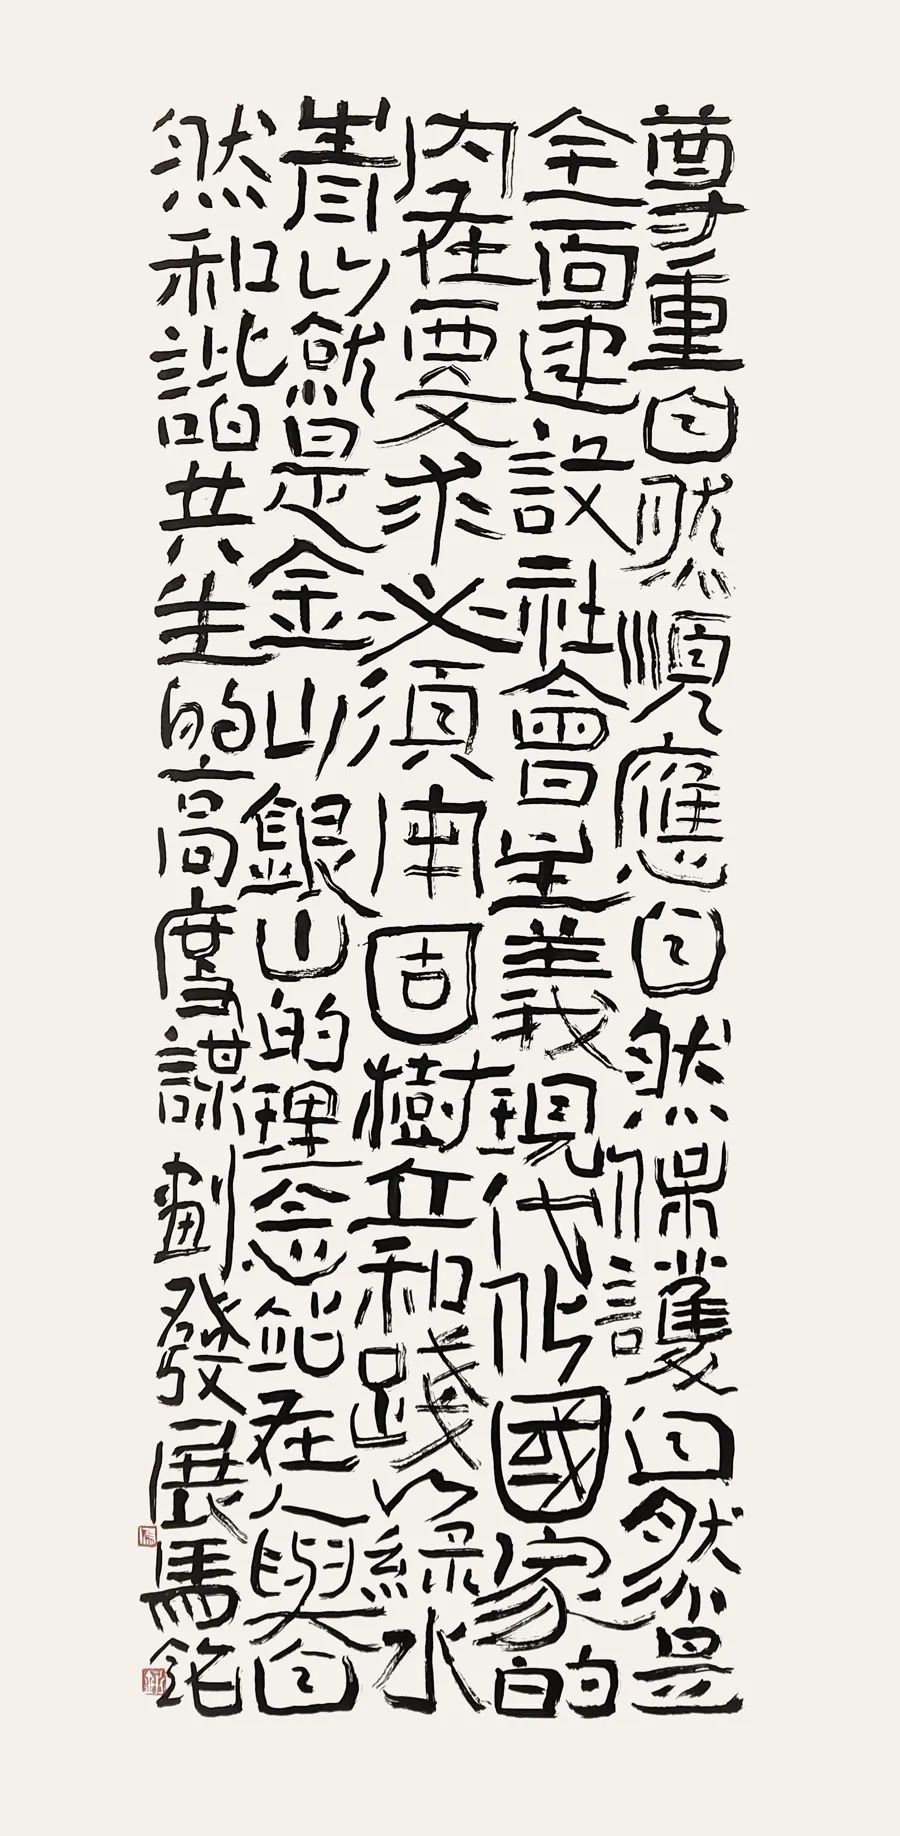 尊重自然順應自然保護自然是
全面建設社會主義現代化國家的
内在要求必須牢固樹立和踐以綠水
青山就是金山銀山的理念站在人與自
然和諧共生的高度謀劃發展馬